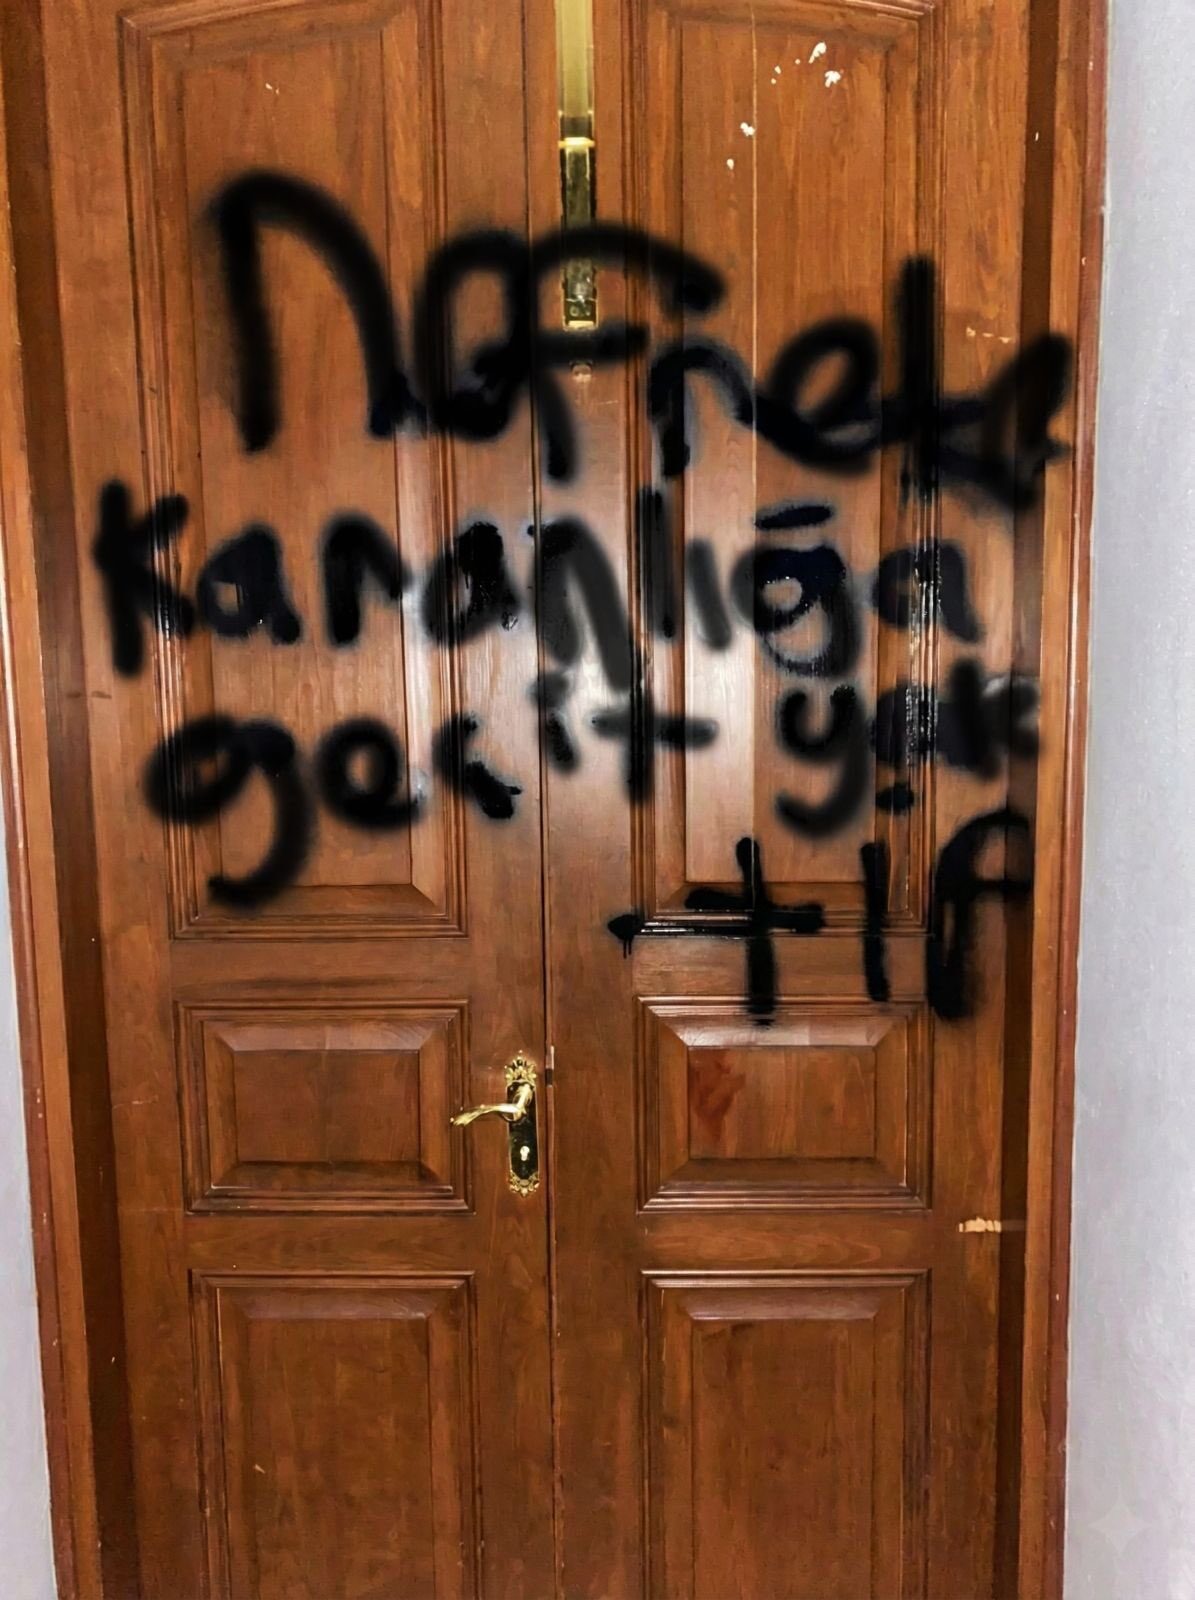 Nefrete
Karanlığa
geçit yok
-TIP